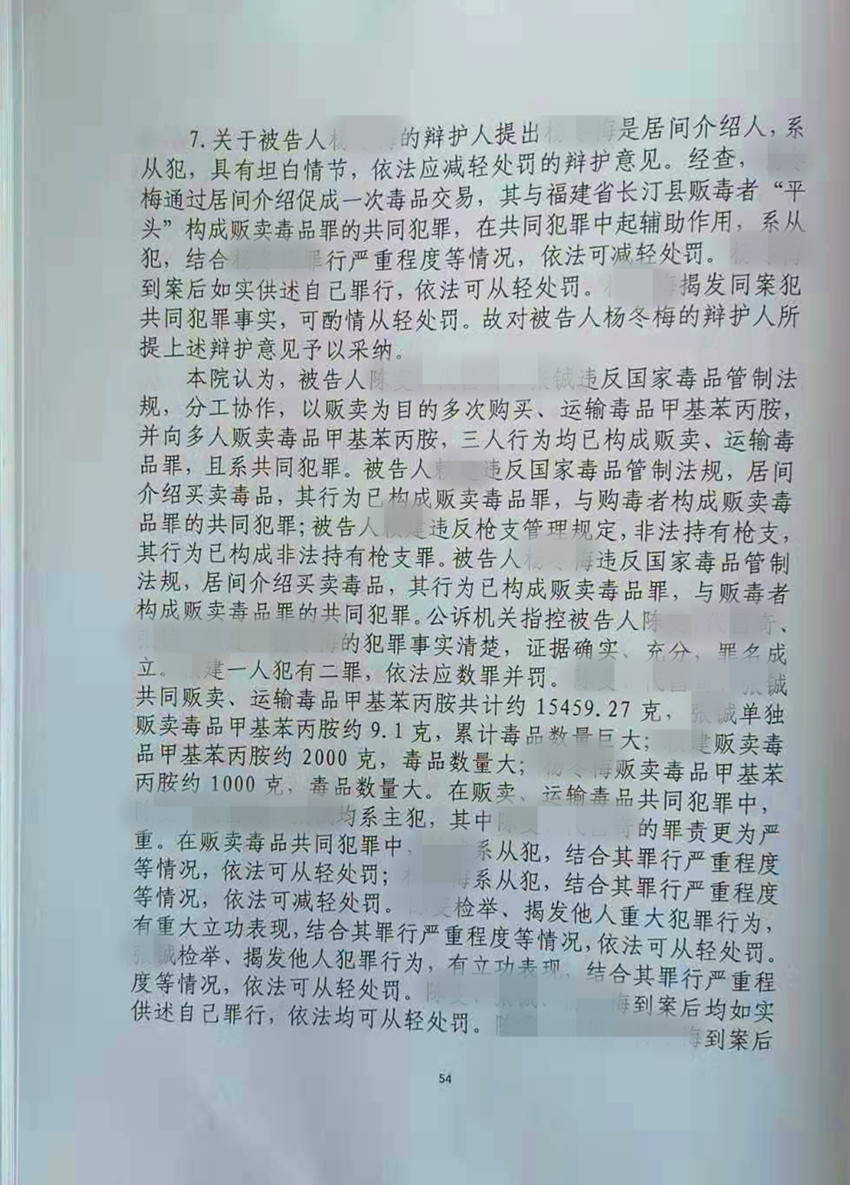 7.关于被告人杨 梅的辩护人提出 梅是居间介绍人，系
从犯，具有坦白情节，依法应减轻处罚的辩护意见。经查，
梅通过居间介绍促成一次毒品交易，其与福建省长汀县贩毒者“平
头”构成贩卖毒品罪的共同犯罪，在共同犯罪中起辅助作用，系从
犯，结合 罪行严重程度等情况，依法可减轻处罚。
到案后如实供述自己罪行，依法可从轻处罚。 揭发同案犯
共同犯罪事实，可酌情从轻处罚。故对被告人杨冬梅的辩护人所
提上述辩护意见予以采纳。
本院认为，被告人陈 张铖违反国家毒品管制法
规，分工协作，以贩卖为目的多次购买、运输毒品甲基苯丙胺，
并向多人贩卖毒品甲基苯丙胺，三人行为均已构成贩卖、运输毒
品罪，且系共同犯罪。被告人 违反国家毒品管制法规，居间
介绍买卖毒品，其行为已构成贩卖毒品罪，与购毒者构成贩卖毒
品罪的共同犯罪；被告人 建违反枪支管理规定，非法持有枪支，
其行为已构成非法持有枪支罪。被告人 梅违反国家毒品管制
法规，居间介绍买卖毒品，其行为已构成贩卖毒品罪，与贩毒者
构成贩卖毒品罪的共同犯罪。公诉机关指控被告人陈 奇、
梅的犯罪事实清楚，证据确实、充分，罪名成
立。 建一人犯有二罪，依法应数罪并罚。 张铖
共同贩卖、运输毒品甲基苯丙胺共计约 15459.27 克，张铖单独
贩卖毒品甲基苯丙胺约 9.1 克，累计毒品数量巨大； 建贩卖毒
品甲基苯丙胺约 2000 克，毒品数量大；杨冬梅贩卖毒品甲基苯
丙胺约 1000 克，毒品数量大。在贩卖、运输毒品共同犯罪中，
均系主犯，其中陈 奇的罪责更为严
重。在贩卖毒品共同犯罪中， 系从犯，结合其罪行严重程度
等情况，依法可从轻处罚； 梅系从犯，结合其罪行严重程度
等情况，依法可减轻处罚。 检举、揭发他人重大犯罪行为，
有重大立功表现，结合其罪行严重程度等情况，依法可从轻处罚。
张铖检举、揭发他人犯罪行为，有立功表现，结合其罪行严重程
度等情况，依法可从轻处罚。陈 、张铖、 梅到案后均如实
供述自己罪行，依法均可从轻处罚。 梅到案后
54